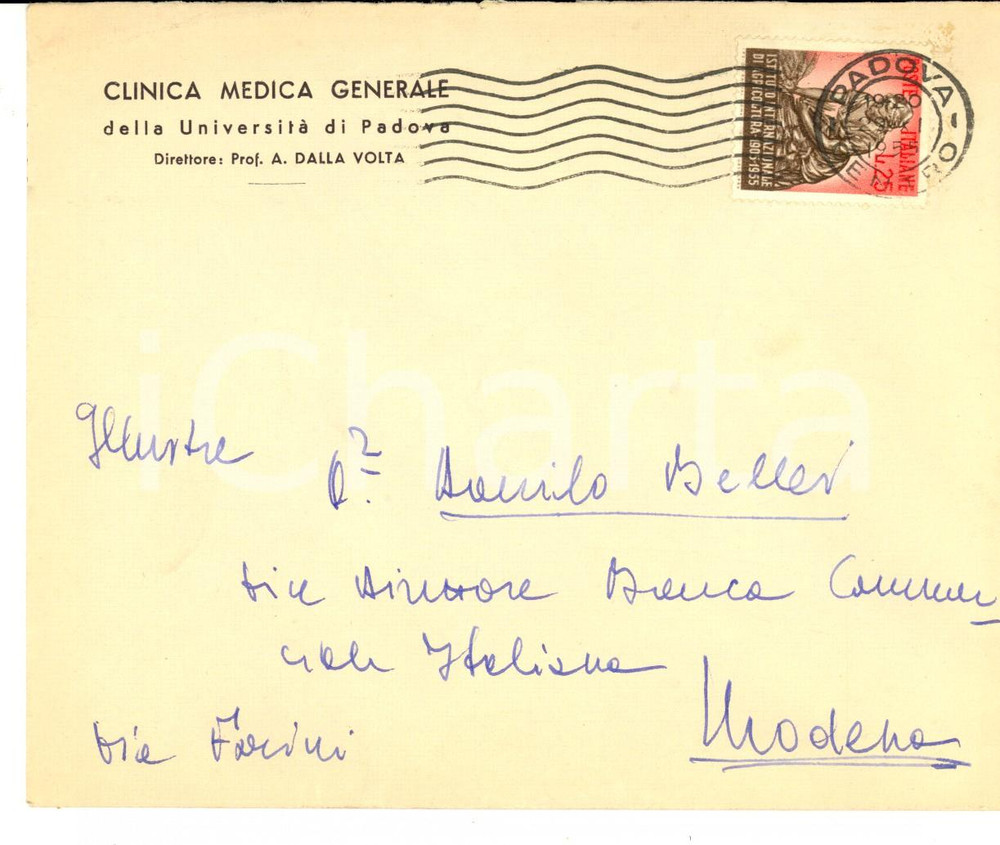 CLINICA MEDICA GENERALE
della Università di Padova
Direttore: Prof. A. DALLA VOLTA
POSTE ITALIANE
L. 25
ISTITUTO INTERNAZIONALE
DI AGRICOLTURA 1905-1955
PADOVA
19.30
iCharta
Illustre
D.r Danilo Bellei
Vice Direttore Banca Commer
ciale Italiana
Modena
Via Farini